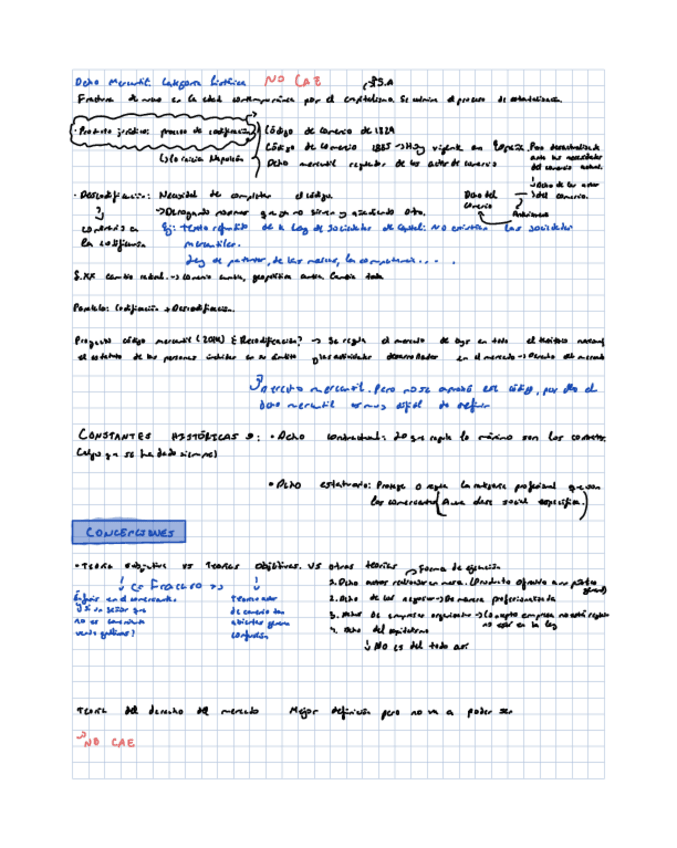 Dcho Mercantil: Categoría histórica NO CAE
S.A
Fractura de nuevo en la edad contemporánea por el capitalismo. Se culmina el proceso de estatalización.
· Producto jurídico: proceso de codificación
↳ Lo inicia Napoleón
Código de comercio de 1829
Código de comercio 1885 → Hoy vigente en España. Pero
ante las necesidades
del comercio actual.
Dcho mercantil regulador de los actos de comercio
↓ Dcho de los actos
del comercio.
· Descodificación: Necesidad de completar el código.
Dcho del comercio
→ Derogando normas que ya no sirven y añadiendo otra.
contrario a
la codificación
Ej: texto refundido de la Ley de Sociedades de Capital: NO existían las sociedades
mercantiles.
Ley de patentes, de las marcas, la competencia. . . .
S.XX cambio radical. → comercio cambia, geopolítica cambia. Cambia todo
Paralelo: Codificación + Descodificación.
Proyecto código mercantil (2014) ¿Recodificación? → Se regula el mercado de en todo el territorio nacional
el estatuto de las personas incluidas en su ámbito y las actividades desarrolladas en el mercado → Derecho del mercado
↳ Derecho mercantil. Pero no se aprobó ese código, por ello el
dcho mercantil es muy difícil de definir
CONSTANTES HISTÓRICAS: · Dcho contractual: Lo que regula lo máximo son los contratos.
(algo que se ha dado siempre)
· Dcho estatutario: Protege o regula la profesional que son
los comerciantes (A una clase social específica.)
CONCEPCIONES
· Teoría subjetiva vs Teorías objetivas. VS otras teorías
↓ << Fracaso >> ↓
en el comerciante.
¿Si un señor que
no es comerciante
vende?
Teoría actos
de comercio tan
abiertos genera
confusión
→ Forma de ejecución
1. Dcho actos realizados en masa. (Producto ofrecido a un público general)
2. Dcho de los negocios → De manera profesionalizada
3. Actos de empresas organizadas → Concepto empresa no está regulado
no está en la ley
4. Dcho del capitalismo
↓ No es del todo así
Teoría del derecho del mercado Mejor definición pero no va a poder ser
↳ NO CAE